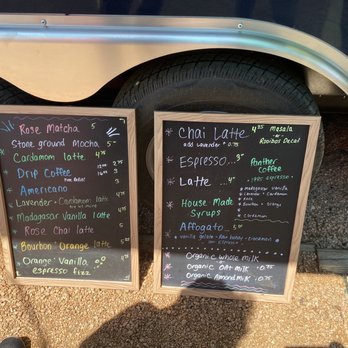 Rose Matcha 5
Stone ground Mocha 5
Cardamom latte 4.75
Drip Coffee
Americano
Lavender + Cardamom latte
Madagascar Vanilla latte
Rose Chai latte 5
Bourbon Orange latte
Orange: Vanilla
espresso fizz
Chai Latte 4.25 Masala
or
Rooibos Decaf
add lavender + 0.75
Espresso...3
Panther
Coffee
Latte ...4
House Made
Syrups
madagascar vanilla
Lavender
Rose
Bourbon + Orange
Cardamom
Affogato
vanilla gelato
Espresso
Organic whole milk
Organic Oat milk +.75
Organic Almond milk +.75